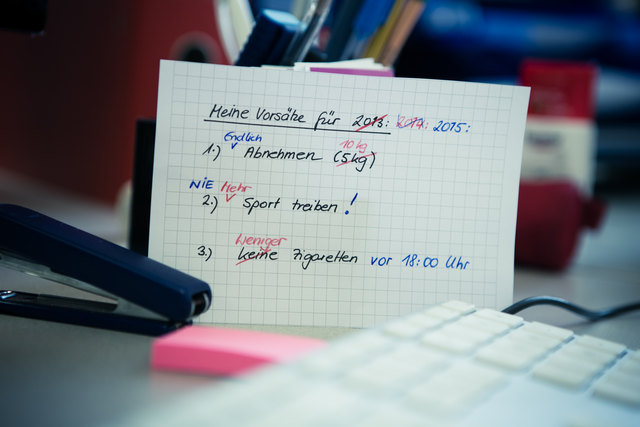 Meine Vorsätze für 2013: 2014: 2015:
Endlich 10 kg
1.) Abnehmen (5kg)
NIE Mehr
2.) Sport treiben!
Weniger
3.) keine Zigaretten vor 18:00 Uhr